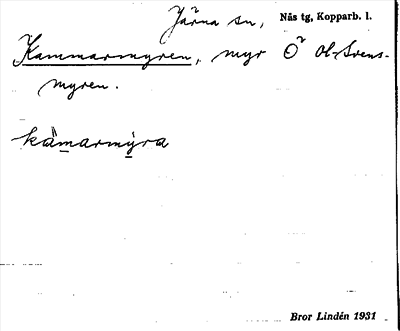 Järna sn, Nås tg, Kopparb. l.
Kammarmyren, myr Ö Ol-Svens-
myren.
kàmarmýra
Bror Lindén 1931